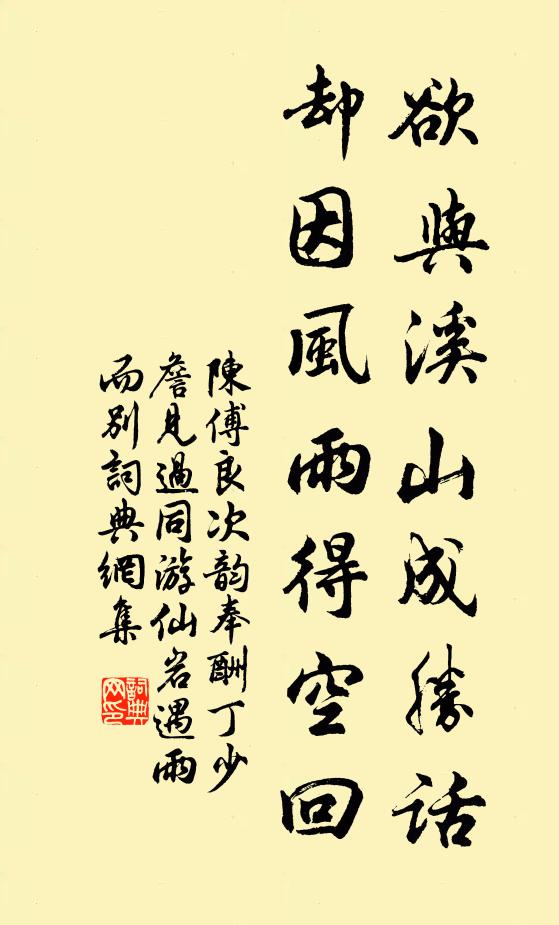 欲與溪山成勝话
却因風雨得空回
陳傅良次韵奉酬丁少
詹見過同游仙岩遇雨
而别詞典網集
詞典
网印